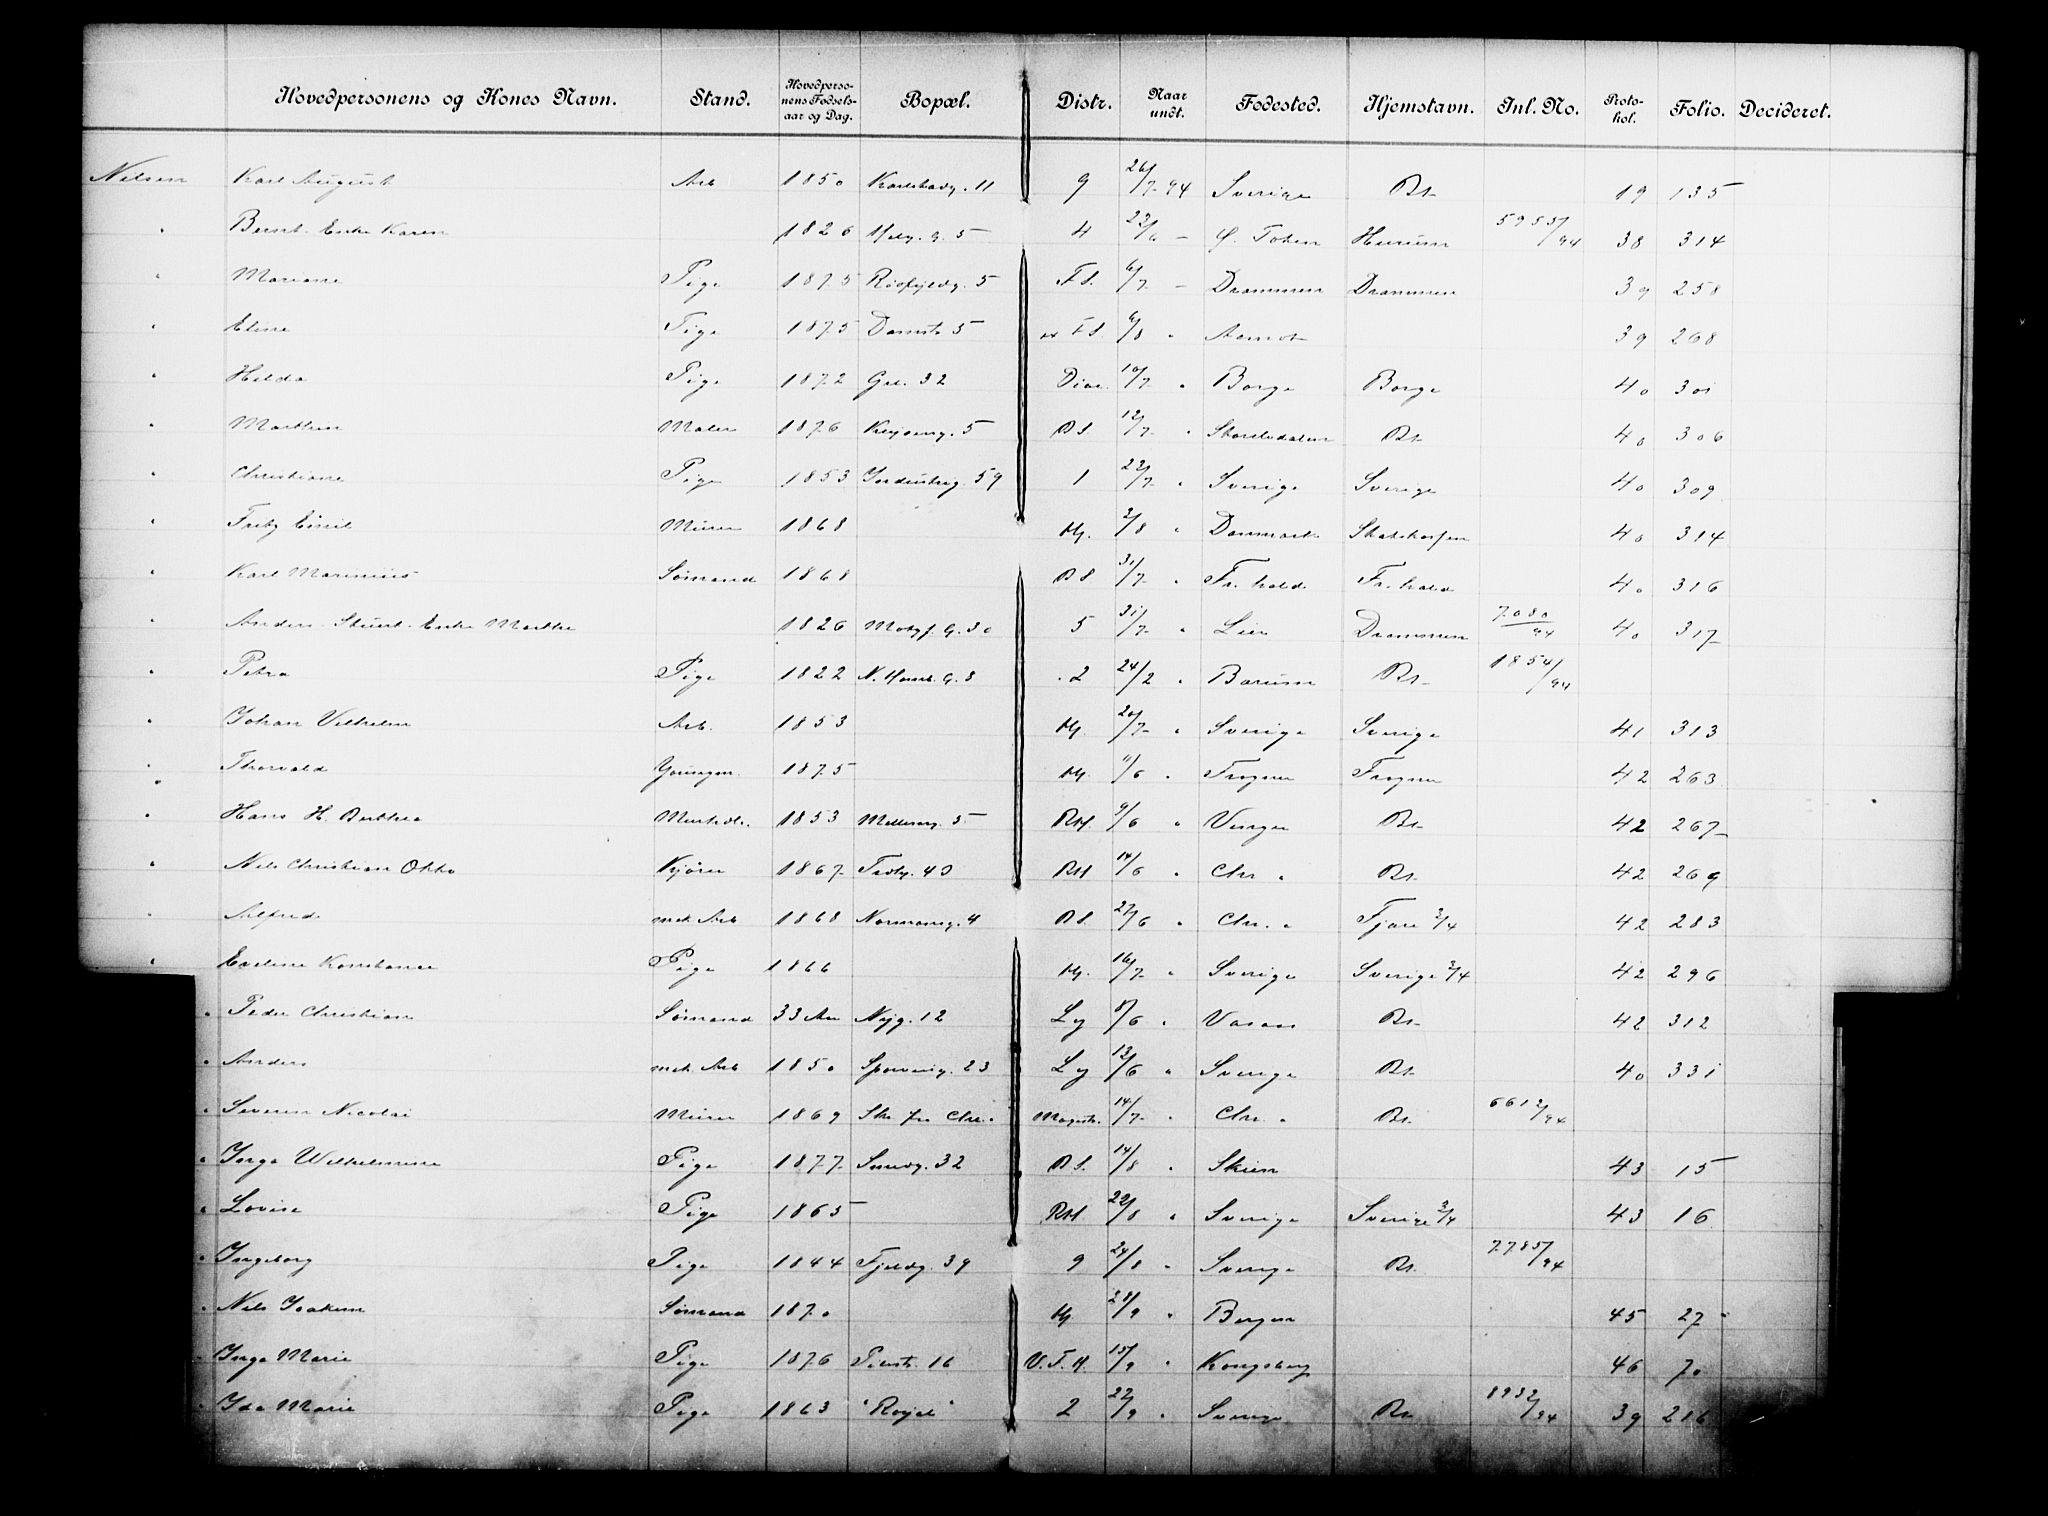 Hovedpersonens og Kones Navn. Stand. Hovedpersonens Fødselsaar og Dag. Bopæl. Distr. Naar undt. Fødested. Hjemstavn. Inl. No. Protokol. Folio. Decideret.
Nilsen Karl August Arb 1850 11 9 26/7 94 Sverige Bt 19 135
" Bernt. Enke Karen 1826 5 4 22/6 - Ø. Toten Hurum 5955/94 38 314
" Mariane Pige 1875 5 F.S. 6/7 - Drammen Drammen 39 258
" Eline Pige 1875 Damst. 5 F.S. 6/8 " Aamot 39 268
" Hilda Pige 1872 Grl. 32 10/7 " Borge Borge 40 301
" Marthin Maler 1876 5 B.S. 12/7 " Bt 40 306
" Christiane Pige 1853 Industrig. 59 1 22/7 " Sverige Sverige 40 309
" Fritz Emil Murer 1868 Hj. 2/8 " Danmark 40 314
" Karl Marinius Sømand 1868 B S 31/7 " Fr.hald Fr.hald 40 316
" Anders Enke Marthe 1826 G. 30 5 31/7 " Lier Drammen 7080/94 40 317
" Petra Pige 1822 G. 8 2 24/2 " Bærum Bt 1854/94
" Johan Vilhelm Arb. 1853 Hj. 20/7 " Sverige Sverige 41 313
" Thorvald 1875 Hj. 11/6 " Frogner Frogner 42 263
" Hans H. Berthea 1853 Møllerg. 5 RH. 9/6 " Vinger Bt 42 267
" Nils Christian Otto Kjører 1867 Toftg. 40 RH 14/6 " Chr. " Bt. 42 269
" Alfred mek Arb 1868 Normansg. 4 B S. 27/6 " Chr. " Fjære 2/4 42 283
" Eveline Konstance Pige 1866 Hj. 16/7 " Sverige Sverige 2/4 42 296
" Peder Christian Sømand 33 Aar Nyg. 12 Lg 8/6 " Bt. 42 312
" Anders mek Arb 1850 Sporveisg. 23 Lg 13/6 " Sverige Bt. 40 331
" Severin Nicolai Murer 1869 Magistr. 14/7 " Chr. " Bt. 6612/94
" Inga Wilhelmine Pige 1877 Smedg. 32 B S. 14/8 " Skien 43 15
" Lovise Pige 1865 RH. 22/8 " Sverige Sverige 2/4 43 16
" Ingeborg Pige 1844 Fjeldg. 39 9 24/8 " Sverige Bt. 7785/94
" Nils Joakim Sømand 1870 Hj 28/9 " Bergen 45 27
" Inga Marie Pige 1876 16 V.F.H. 15/9 " Kongsberg 46 70
" Ida Marie Pige 1863 "Royal" 2 22/9 " Sverige Bt. 8932/94 39 216